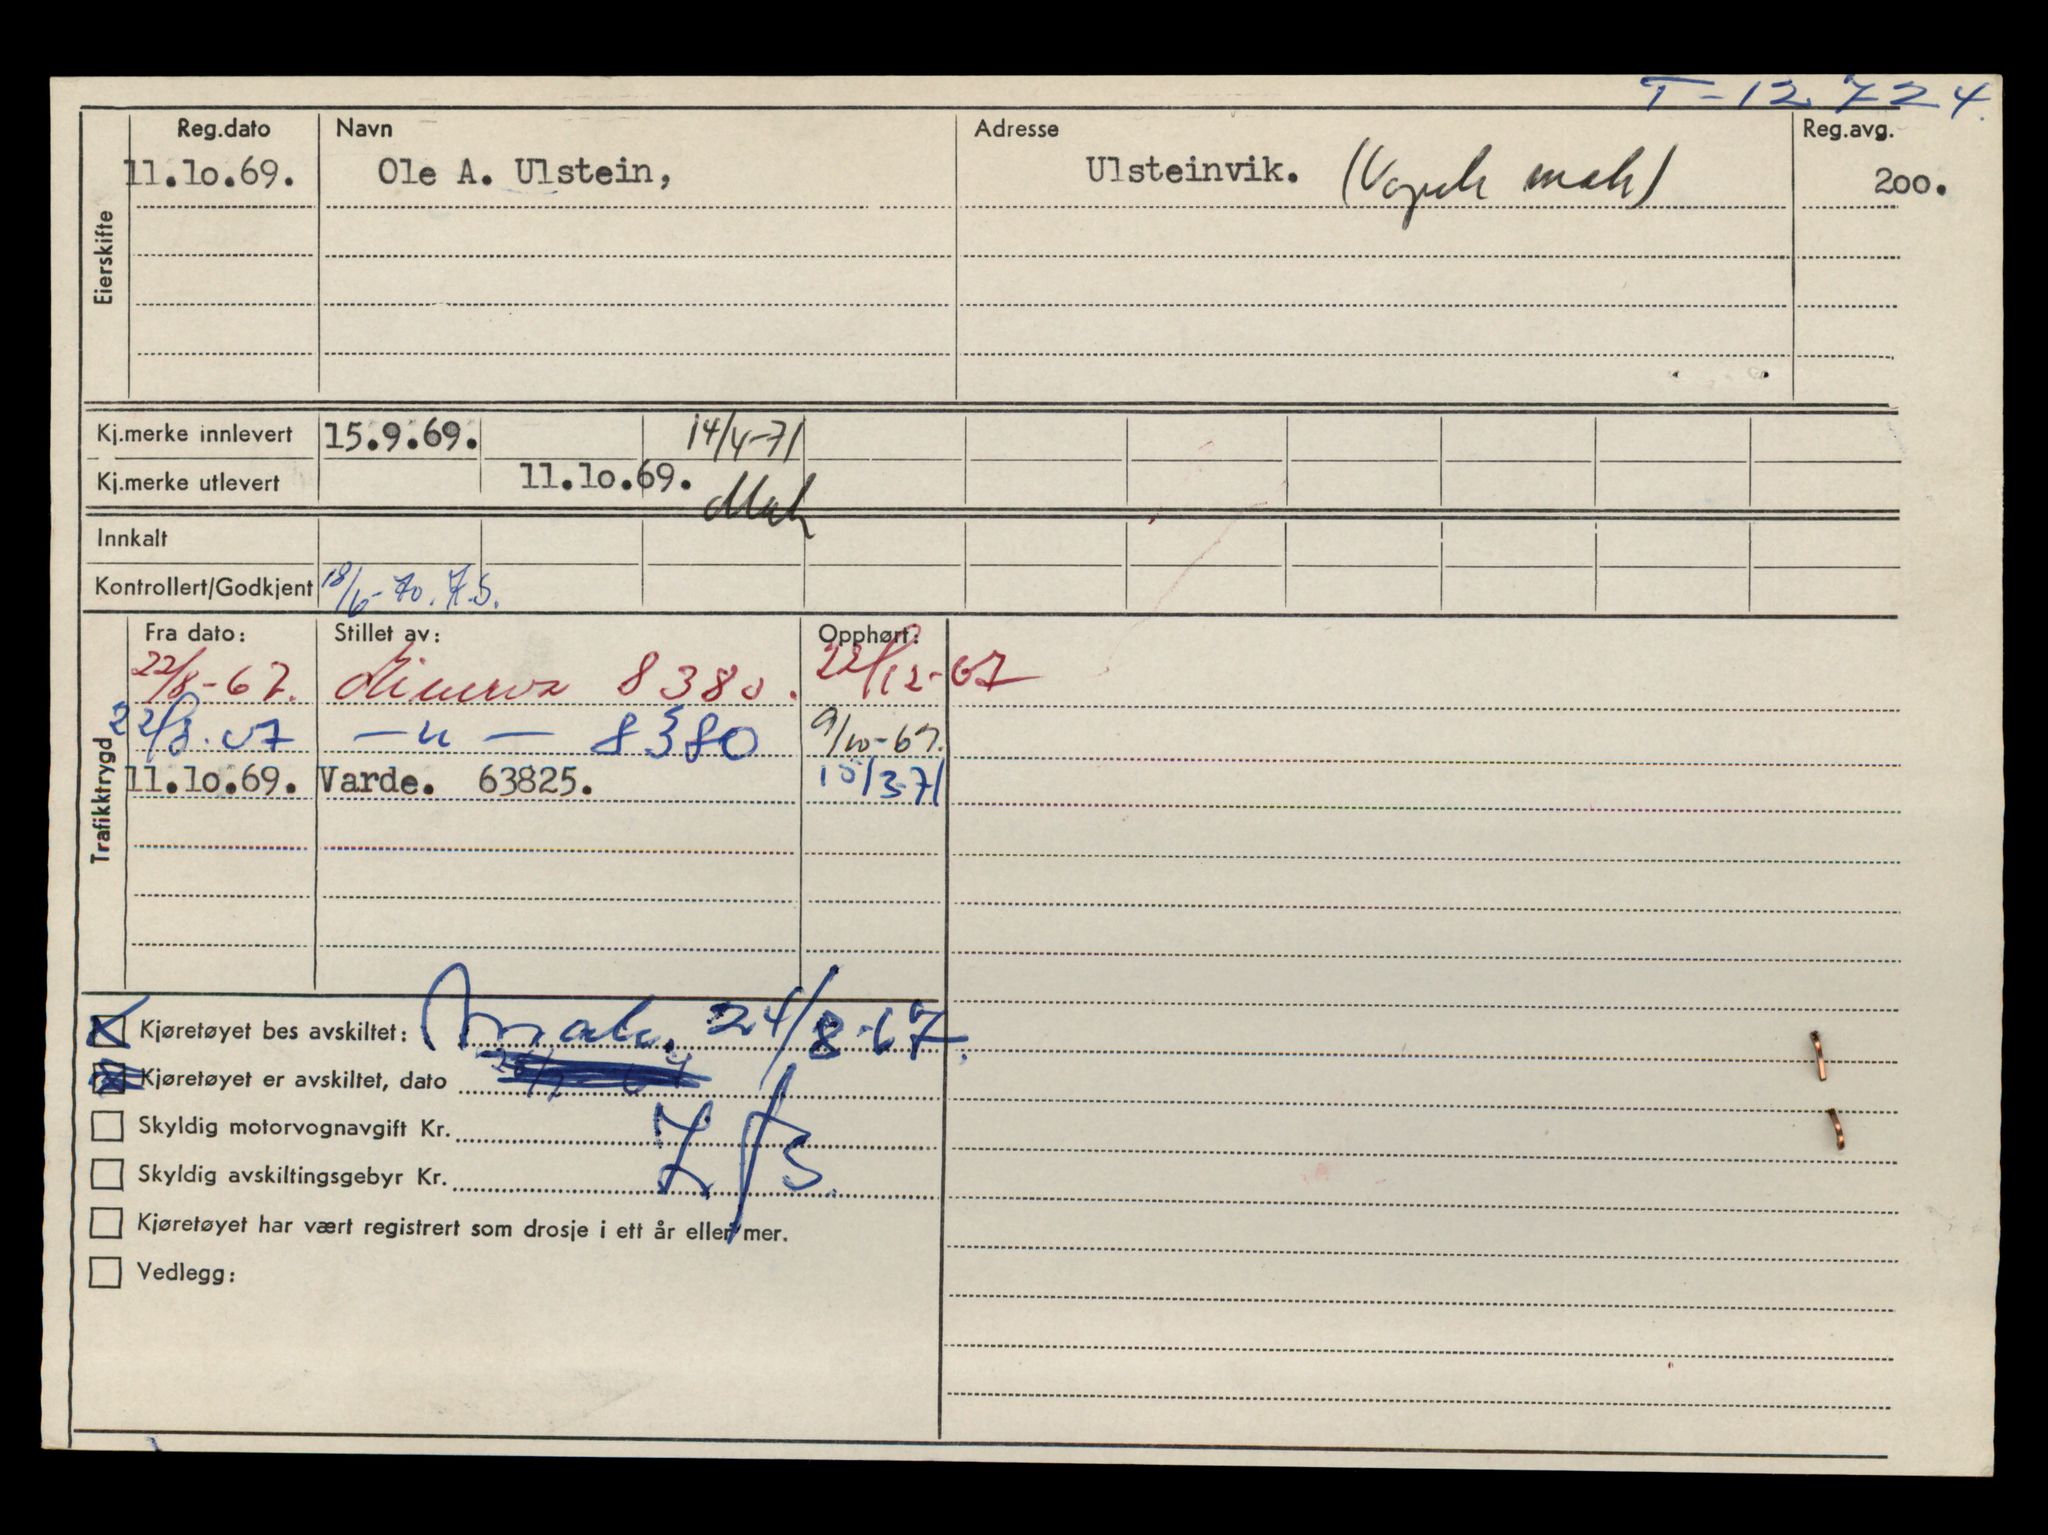 T-12724
Reg.dato Navn Adresse Reg.avg.
11.10.69. Ole A. Ulstein, Ulsteinvik. 200.
Eierskifte
Kj.merke innlevert 15.9.69. 14/4-71
Kj.merke utlevert 11.10.69.
Innkalt
Kontrollert/Godkjent 18/6-70.
Trafikktrygd
Fra dato: Stillet av: Opphørt:
22/8-67. Minerva 8380. 22/12-67
22/8.67 —"— 8380 9/10-69.
11.10.69. Varde. 63825. 15/3-71
Kjøretøyet bes avskiltet: 24/8-67.
Kjøretøyet er avskiltet, dato
Skyldig motorvognavgift Kr.
Skyldig avskiltingsgebyr Kr.
Kjøretøyet har vært registrert som drosje i ett år eller mer.
Vedlegg: